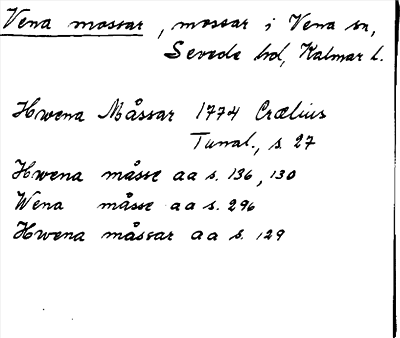 Vena mossar, mossar i Vena sn,
Sevede hd, Kalmar l.
Hwena Måssar 1774 Crælius
Tunal., s 27
Hwena måsse aa s. 136, 130
Wena måsse aa s. 296
Hwena måssar aa s. 129